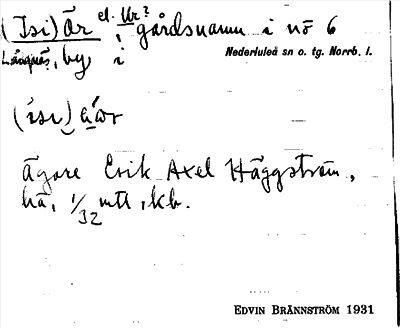 (Isi)Är el. Ur?, gårdsnamn i nö 6
Långnäs, by, i Nederluleå sn o. tg. Norrb. l.
ägare Erik Axel Häggström,
ha, 1/32 mtl, kb.
EDVIN BRÄNNSTRÖM 1931